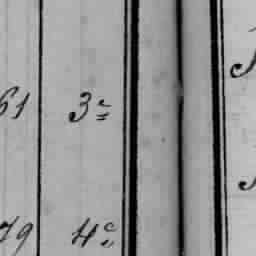 61 3e
79 4e